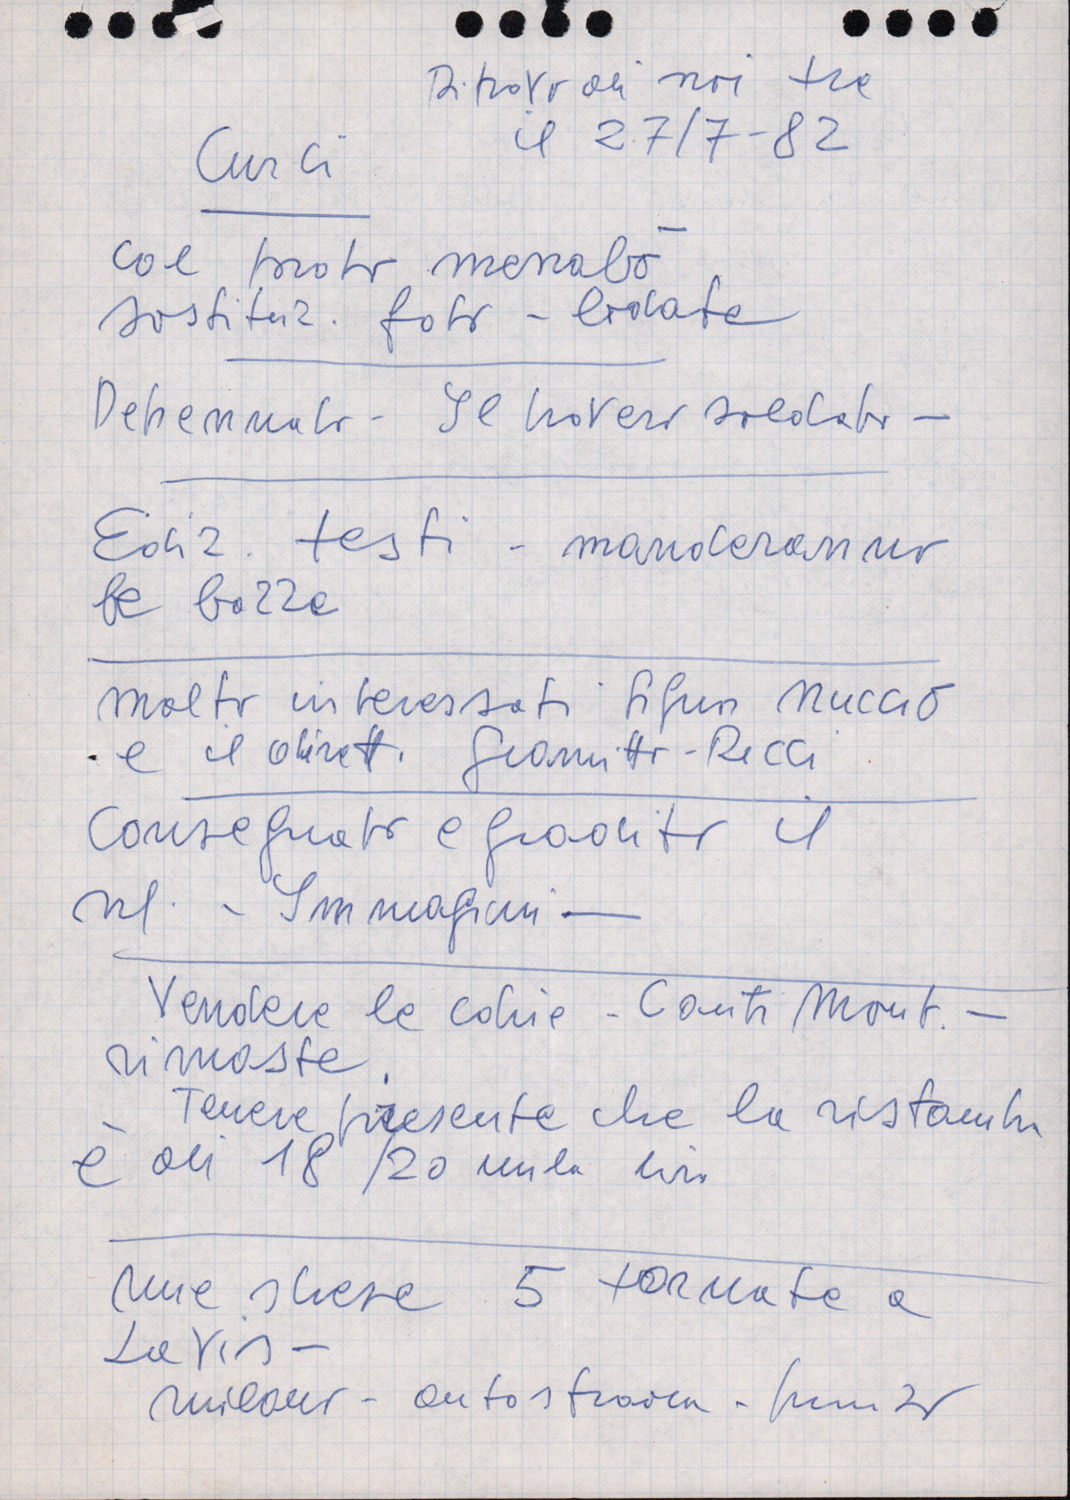 Ritrovo di noi tre
il 27/7-82
Curci
col proto menabò
sostituz. foto - lodate
Depennato - Il povero soldato -
Ediz. testi - manderanno
le bozze
molto interessati Sigra Nuccio
e il dirett. Gianitto-Ricci
Consegnato e gradito il
nl. - Immagini -
Vendere le copie - Canti Mont. -
rimaste.
Tenere presente che la ristampa
è di 18/20 mila lire
Mie spese 5 tornate a
Lavis -
milano - autostrada - pranzo